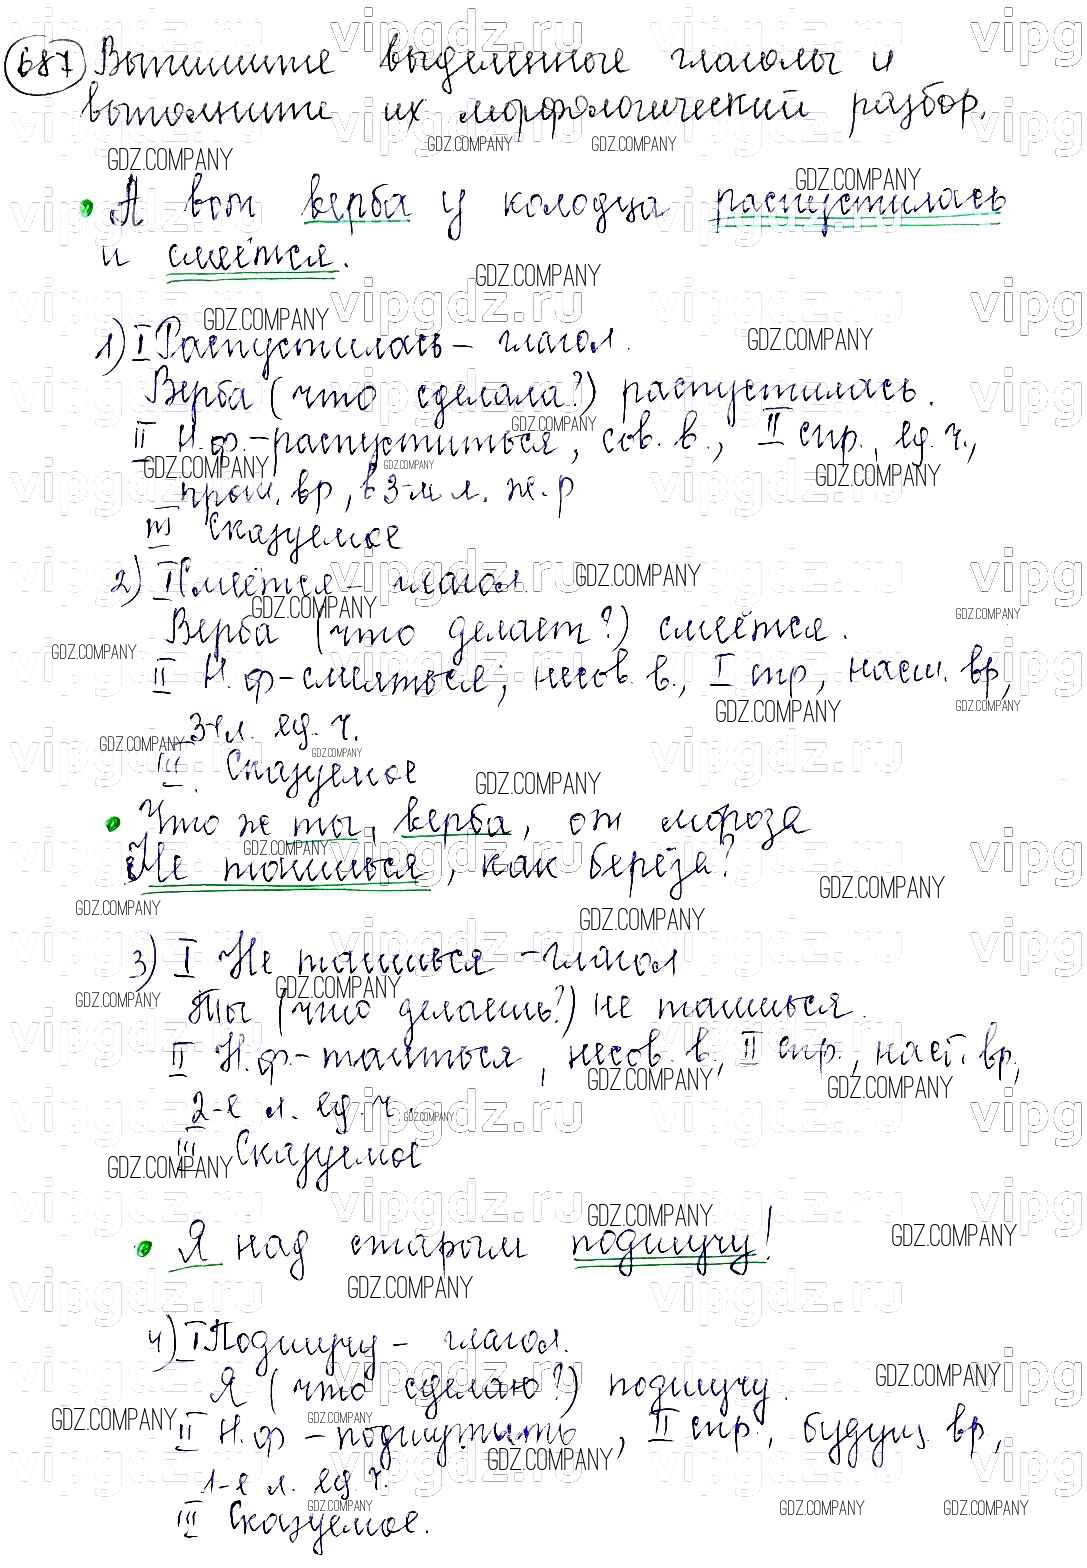 687 Выпишите выделенные глаголы и
выполните их морфологический разбор.
• А вот верба у колодца распустилась
и смеётся.
1) I Распустилась – глагол.
Верба (что сделала?) распустилась.
II Н.ф. – распуститься, сов. в., II спр., ед. ч.,
прош. вр., в 3-м л. ж. р
III Сказуемое
2) I Смеётся – глагол.
Верба (что делает?) смеётся.
II Н. ф – смеяться, несов. в., I спр, наст. вр,
3-е л. ед. ч.
III Сказуемое
• Что же ты, верба, от мороза
Не таишься, как берёза?
3) I Не таишься – глагол
Ты (что делаешь?) не таишься.
II Н. ф. – таиться, несов. в., II спр., наст. вр,
2-е л. ед. ч.
III Сказуемое
• Я над старым подшучу!
4) I Подшучу – глагол.
Я (что сделаю?) подшучу.
II Н. ф – подшутить, II спр, будущ. вр,
1-е л. ед ч.
III Сказуемое.
vipgdz.ru
GDZ.COMPANY